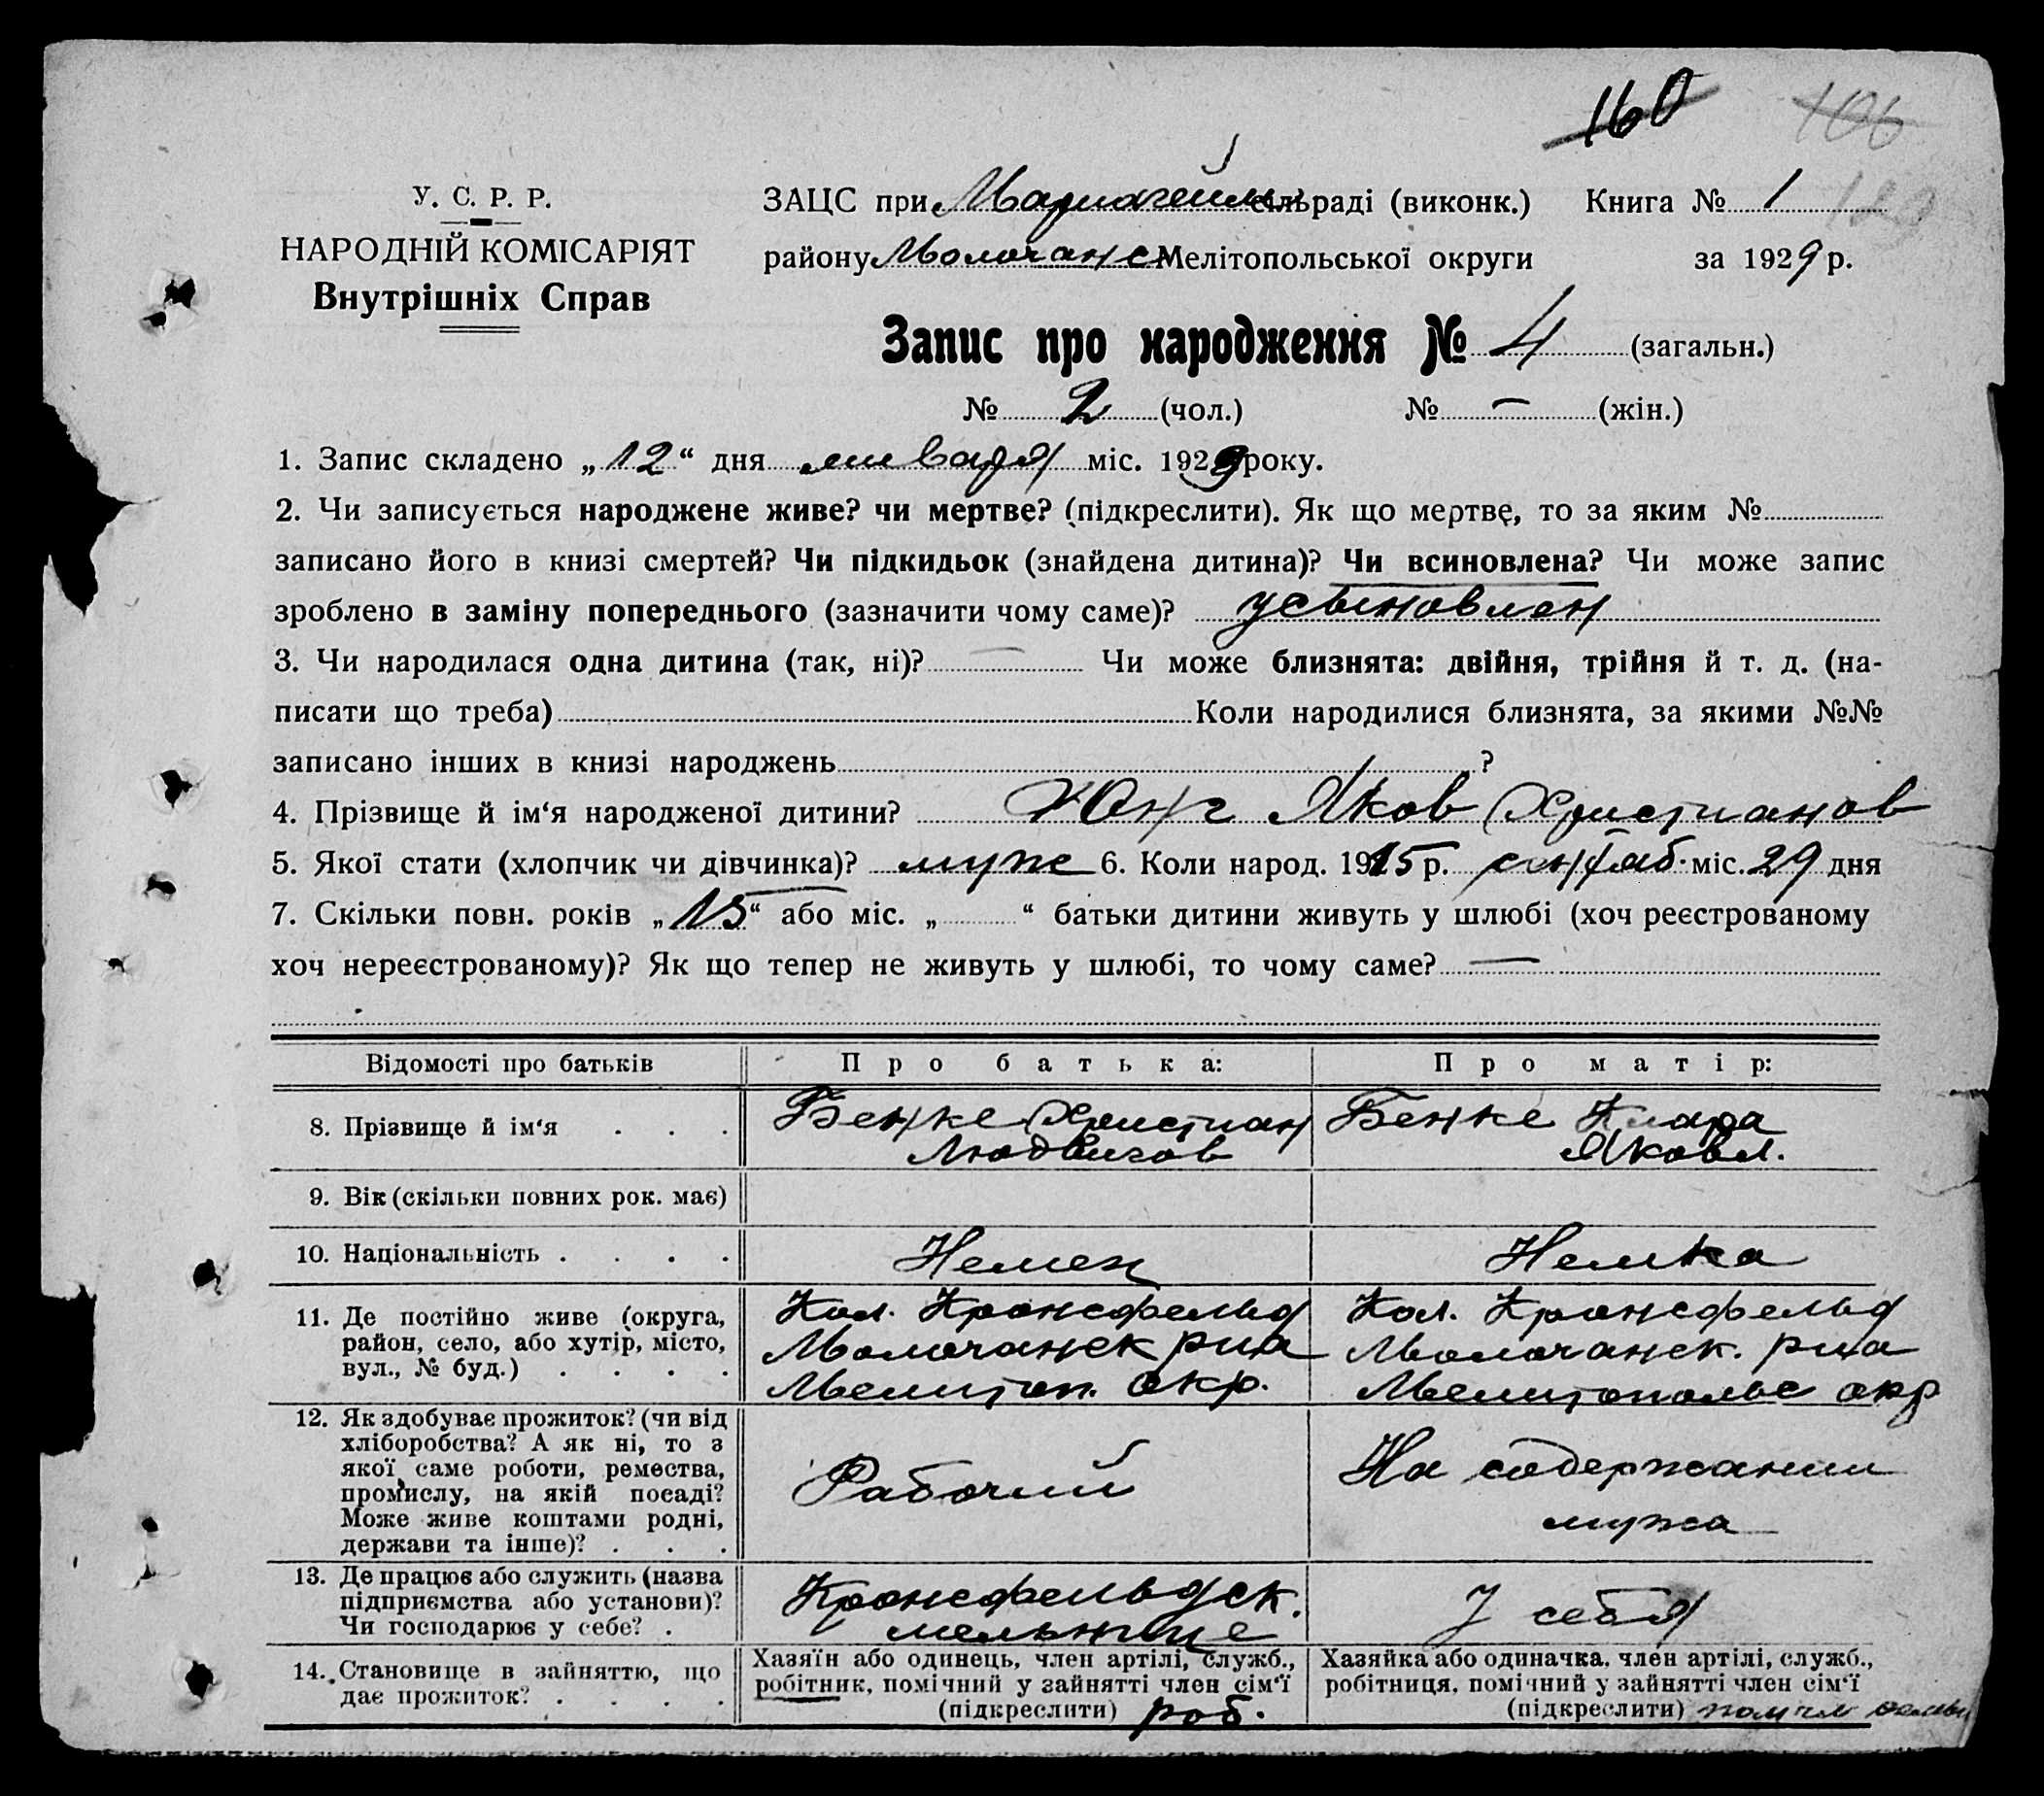 160 106
У. С. Р. Р.
НАРОДНІЙ КОМІСАРІЯТ
Внутрішніх Справ
ЗАЦС при сільраді (виконк.) Книга № 1
району Молочанс Мелітопольської округи за 1929 р.
Запис про народження № 4 (загальн.)
№ 2 (чол.) № — (жін.)
1. Запис складено „12“ дня января міс. 1929 року.
2. Чи записується народжене живе? чи мертве? (підкреслити). Як що мертве, то за яким №
записано його в книзі смертей? Чи підкидьок (знайдена дитина)? Чи всиновлена? Чи може запис
зроблено в заміну попереднього (зазначити чому саме)? усыновлен
3. Чи народилася одна дитина (так, ні)? — Чи може близнята: двійня, трійня й т. д. (на-
писати що треба) Коли народилися близнята, за якими №№
записано інших в книзі народжень ?
4. Прізвище й ім‘я народженої дитини? Юнг Яков Христианов
5. Якої стати (хлопчик чи дівчинка)? муж 6. Коли народ. 1915 р. сентяб. міс. 29 дня
7. Скільки повн. років „15“ або міс. „ “ батьки дитини живуть у шлюбі (хоч реєстрованому
хоч нереєстрованому)? Як що тепер не живуть у шлюбі, то чому саме? —
Відомості про батьків Про батька: Про матір:
8. Прізвище й ім‘я . . . Бенке Христиан Бенке Клара
Людвигов Яковл.
9. Вік (скільки повних рок. має)
10. Національність . . . . Немец Немка
11. Де постійно живе (округа, Кол. Кронсфельд Кол. Кронсфельд
район, село, або хутір, місто, Молочанск р-на Молочанск. р-на
вул., № буд.) . . . . Мелитоп. окр. Мелитопольс окр
12. Як здобуває прожиток? (чи від
хліборобства? А як ні, то з
якої саме роботи, ремества, Рабочий На содержании
промислу, на якій посаді?
Може живе коштами родні, мужа
держави та інше)? . . .
13. Де працює або служить (назва Кронсфельдск. У себя
підприємства або установи)?
Чи господарює у себе? . мельнице
14. Становище в зайняттю, що Хазяїн або одинець, член артілі, служб., Хазяйка або одиначка, член артілі, служб.,
дає прожиток? . . . . робітник, помічний у зайнятті член сім‘ї робітниця, помічний у зайнятті член сім‘ї
(підкреслити) роб. (підкреслити)